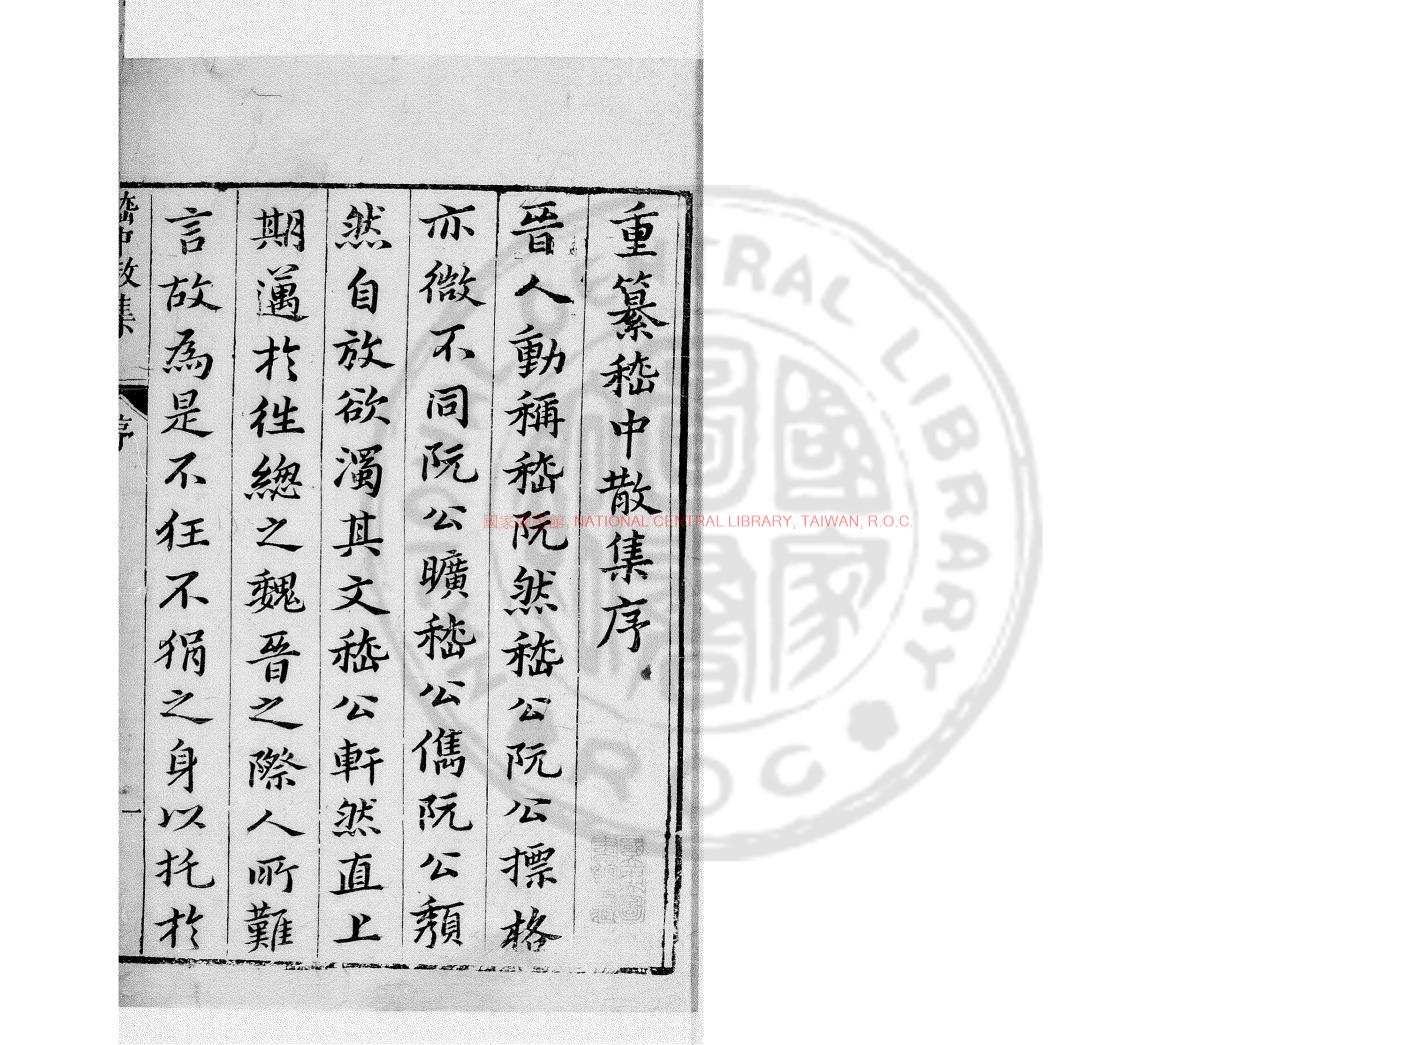 重纂嵇中散集序
晉人動稱嵇阮然嵇公阮公摽格
亦微不同阮公曠嵇公儁阮公頹
然自放欲濁其文嵇公軒然直上
期邁於徃總之魏晉之際人所難
言故為是不狂不狷之身以托於
嵇中散集
序
一
國家圖書館, NATIONAL CENTRAL LIBRARY, TAIWAN, R.O.C.